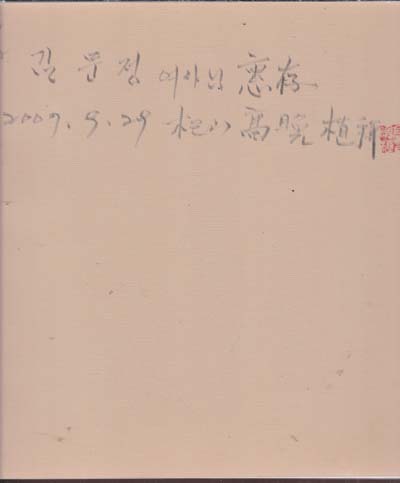 김문정 여사님 惠存
2009. 9. 29 杞山 高晩植 拜